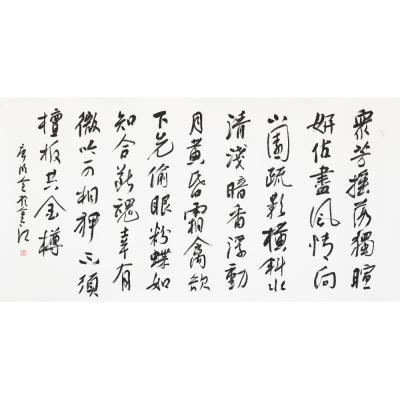 眾芳搖落獨暄
妍佔盡風情向
小園疏影橫斜水
清淺暗香浮動
月黃昏霜禽欲
下先偷眼粉蝶如
知合斷魂幸有
微吟可相狎不須
檀板共金樽